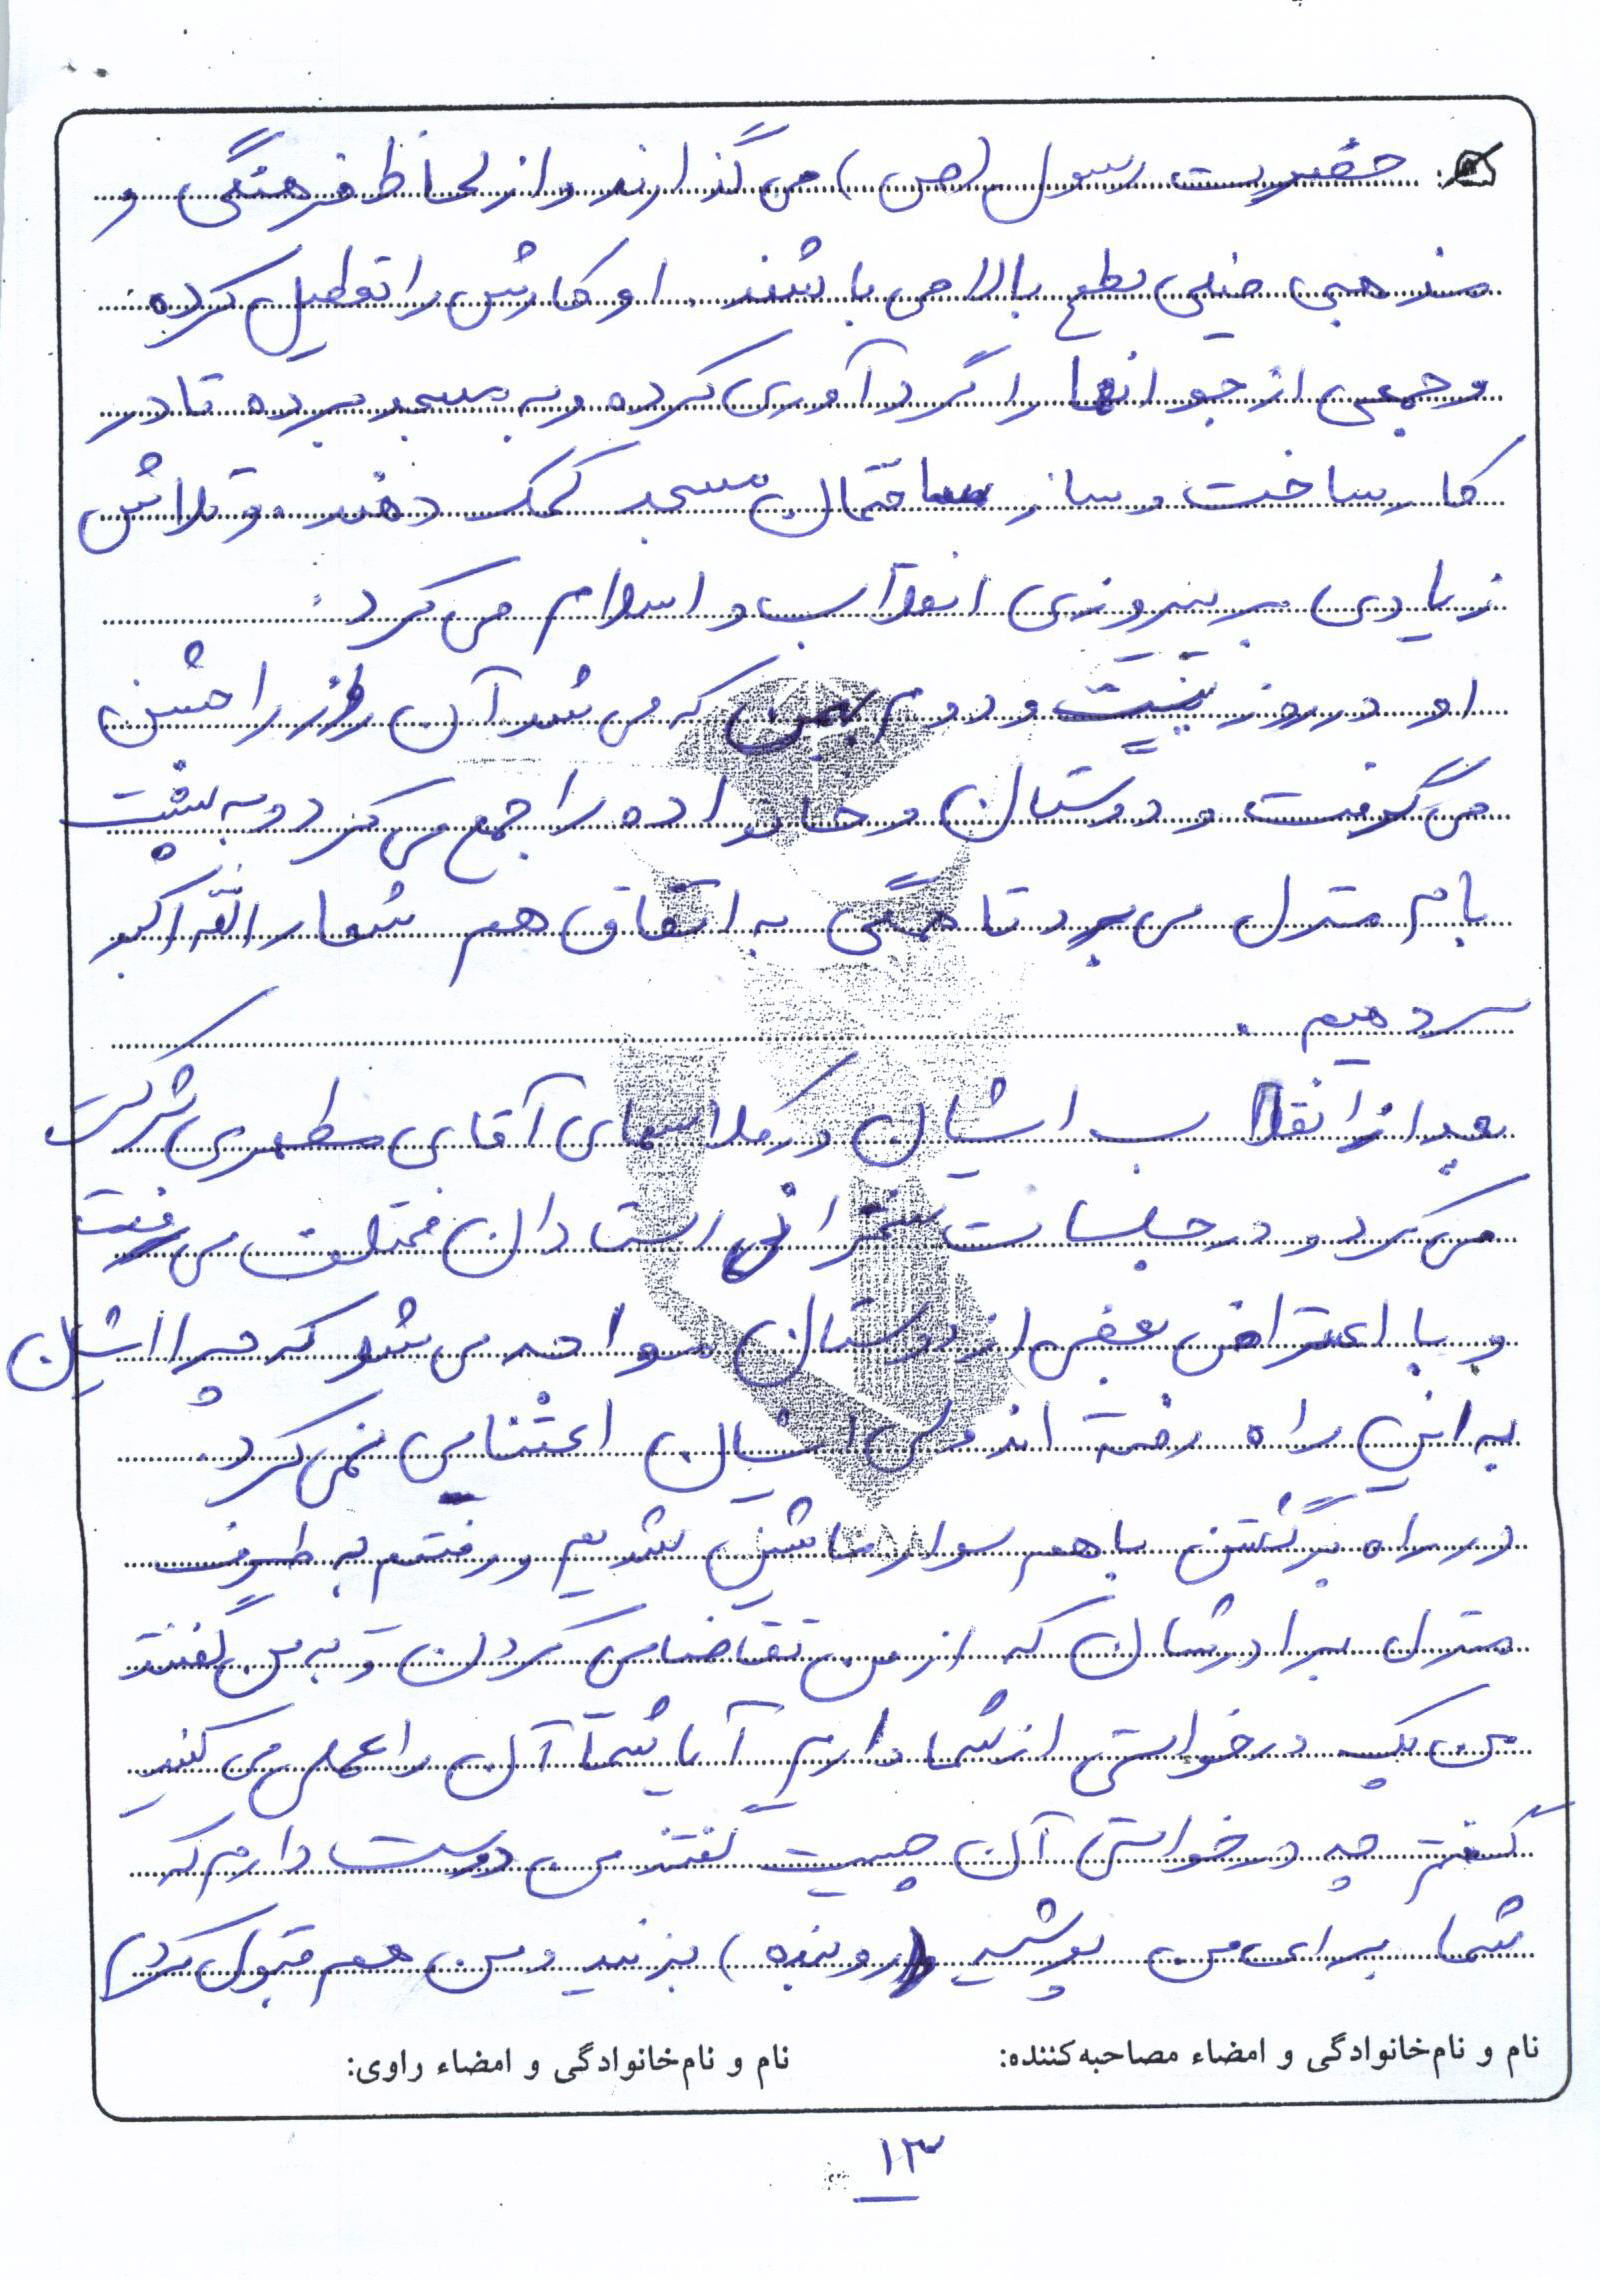 حضرت رسول (ص) می گذارند و از لحاظ فرهنگی و
مذهبی خیلی سطح بالا می باشند. او کارش را تعطیل کرده
و جمعی از جوانها را گردآوری کرده و به مسجد برده تا در
کار ساخت و ساز ساختمان مسجد کمک دهند. و تلاش
زیادی بر پیروزی انقلاب و اسلام می کرد.
او در روز بیست و دوم بهمن که می شد آن روز را جشن
می گرفت و دوستان و خانواده را جمع می کرد و به پشت
بام منزل می برد تا همگی به اتفاق هم شعار الله اکبر
سر دهیم.
بعد از انقلاب ایشان در کلاسهای آقای مطهری شرکت
می کرد و در جلسات سخنرانی استادان مختلف می رفت
و با اعتراض بعضی از دوستان مواجه می شد که چرا ایشان
به این راه رفته اند ولی ایشان اعتنایی نمی کرد.
در راه برگشتن با هم سوار ماشین شدیم و رفتیم به طرف
منزل برادرشان که از من تقاضایی کردن و به من گفتند
من یک درخواستی از شما دارم آیا شما آن را عملی می کنید
گفتم چه درخواستی آن چیست گفتند من دوست دارم که
شما برای من پوشیه (روبنده) بزنید و من هم قبول کردم
نام و نام‌خانوادگی و امضاء مصاحبه‌کننده: نام و نام‌خانوادگی و امضاء راوی:
۱۳